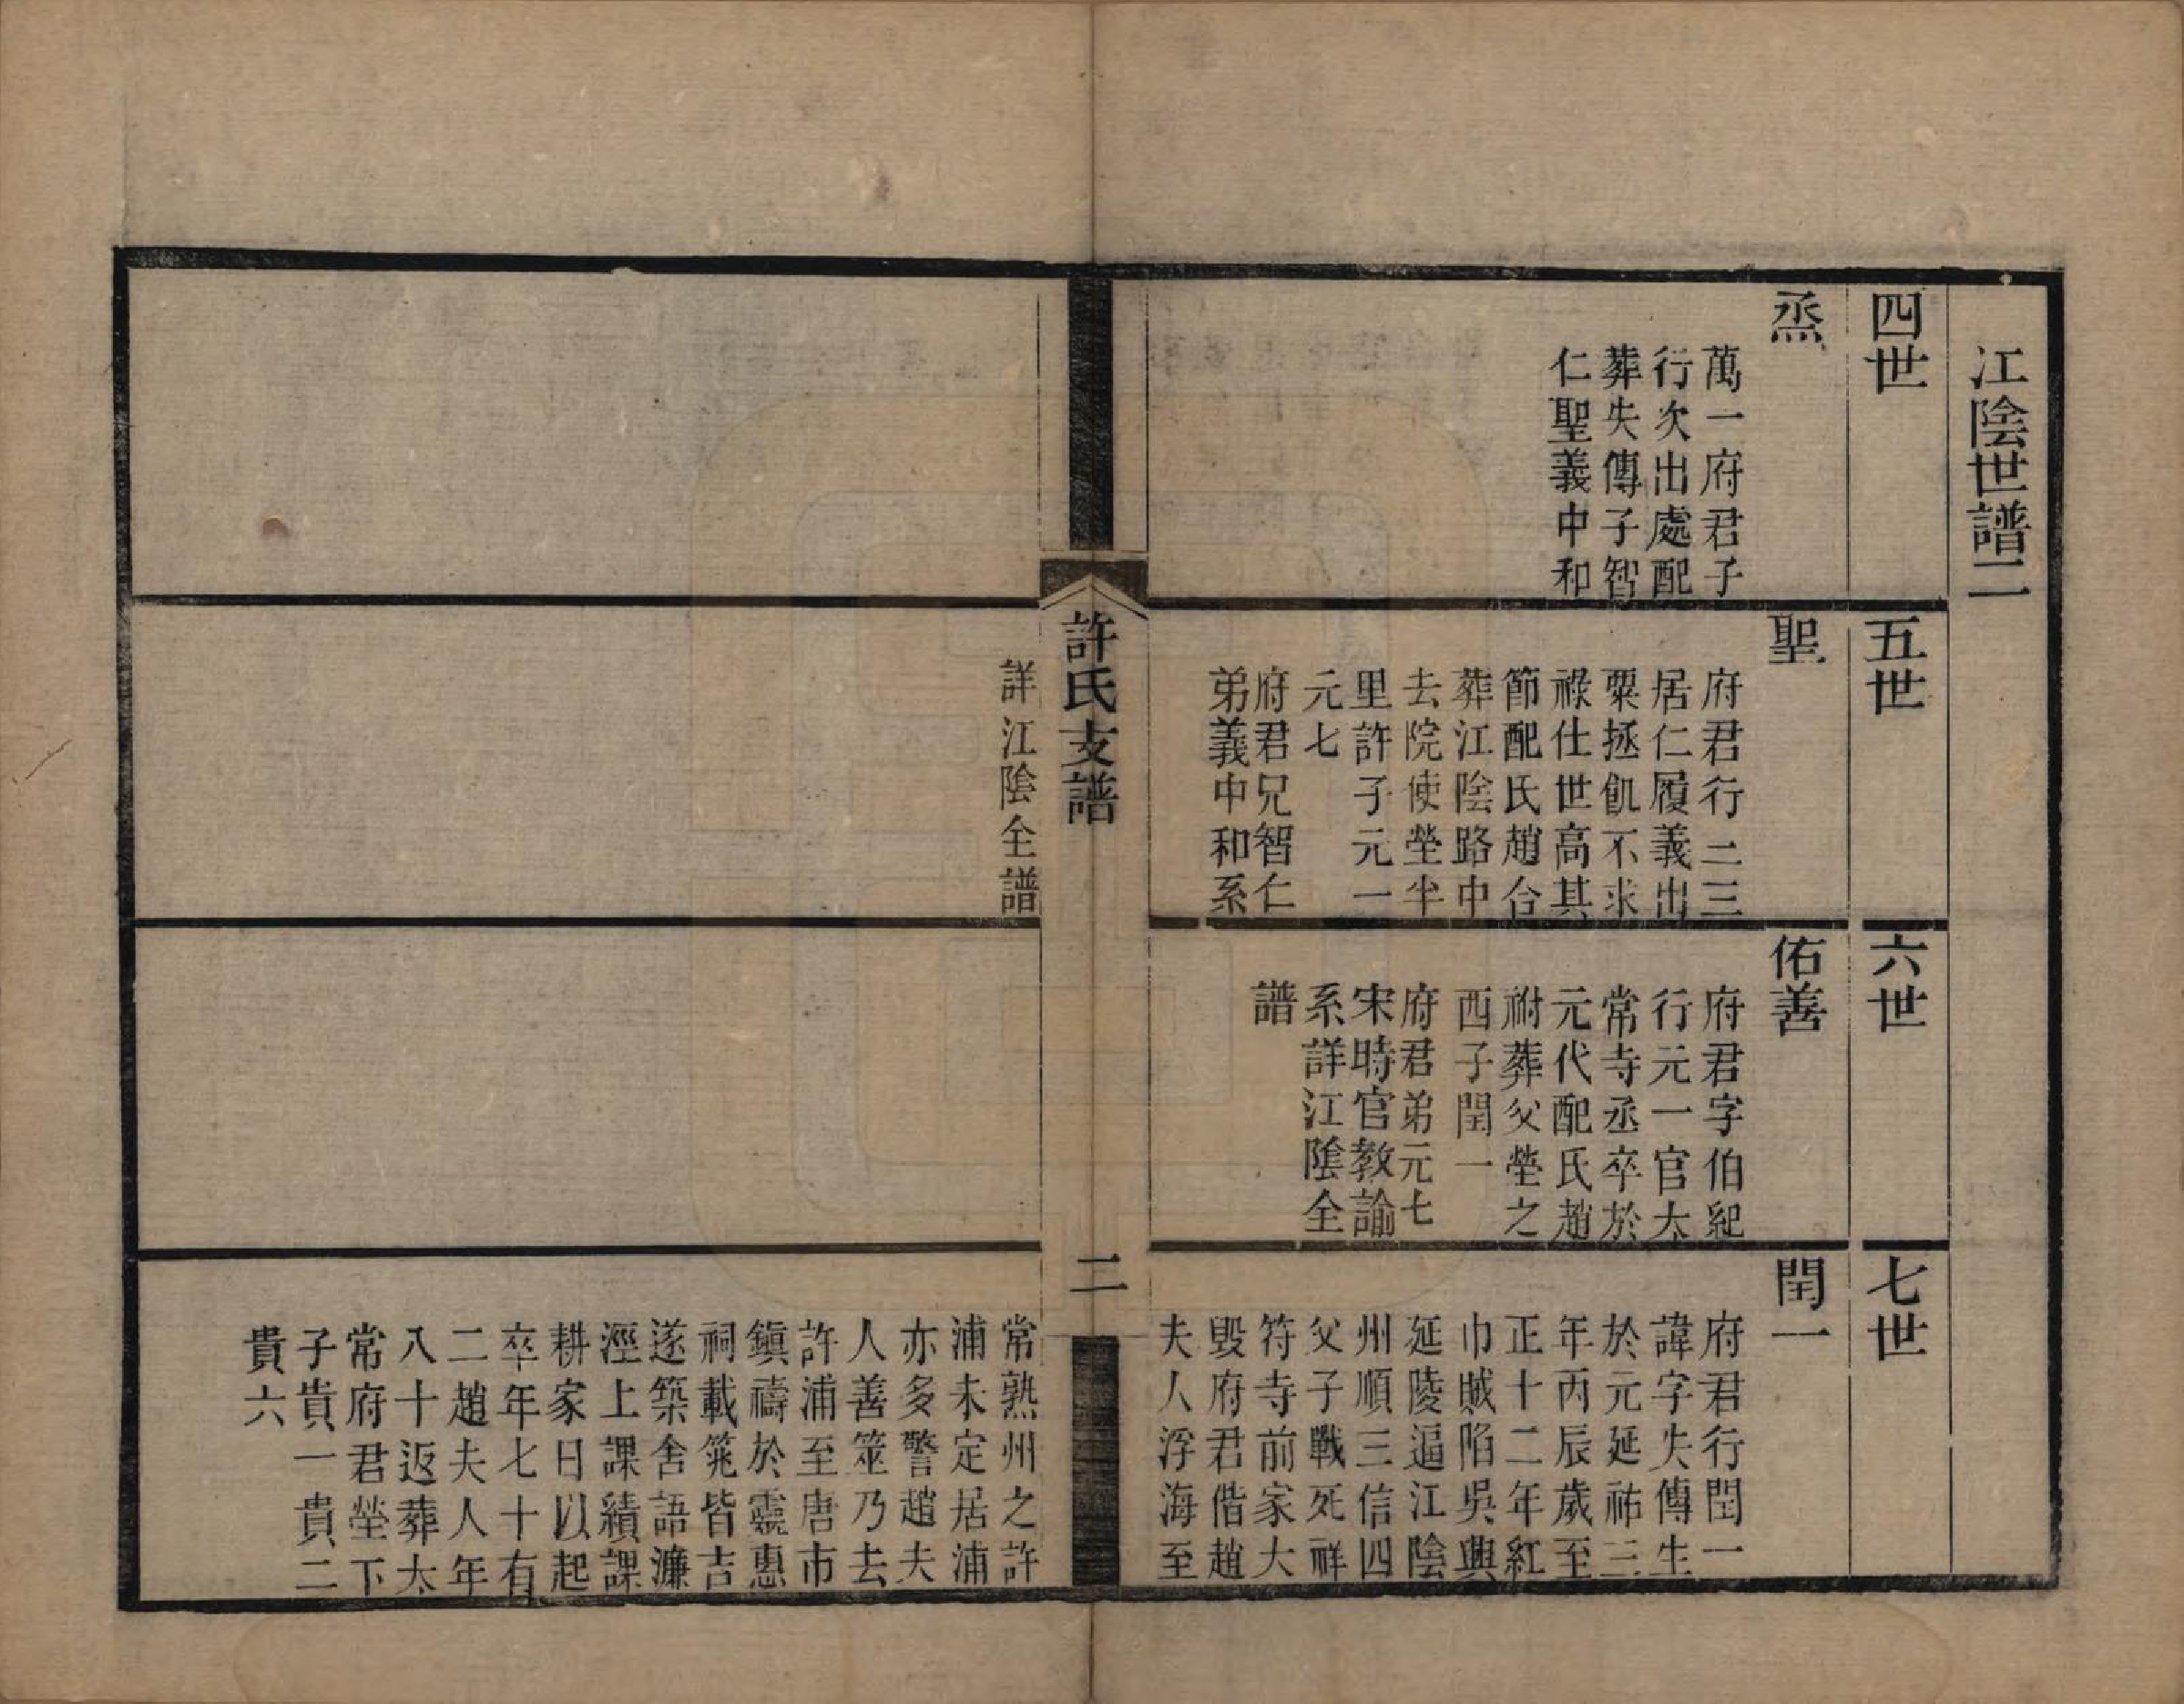 江陰世譜二
四世
烝
萬一府君子
行次出處配
葬失傳子智
仁聖義中和
五世
聖
府君行二三
居仁履義出
粟拯飢不求
祿仕世高其
節配氏趙合
葬江陰路中
去院使塋半
里許子元一
元七
府君兄智仁
弟義中和系
詳江陰全譜
六世
佑善
府君字伯紀
行元一官太
常寺丞卒於
元代配氏趙
祔葬父塋之
西子閏一
府君弟元七
宋時官教諭
系詳江陰全
譜
七世
閏一
府君行閏一
諱字失傳生
於元延祐三
年丙辰歲至
正十二年紅
巾賊陷吳興
延陵逼江陰
州順三信四
父子戰死祥
符寺前家大
毀府君偕趙
夫人浮海至
常熟州之許
浦未定居浦
亦多警趙夫
人善筮乃去
許浦至唐市
鎮禱於靈惠
祠載筮皆吉
遂築舍語濂
涇上課績課
耕家日以起
卒年七十有
二趙夫人年
八十返葬太
常府君塋下
子貴一貴二
貴六
許氏支譜
二